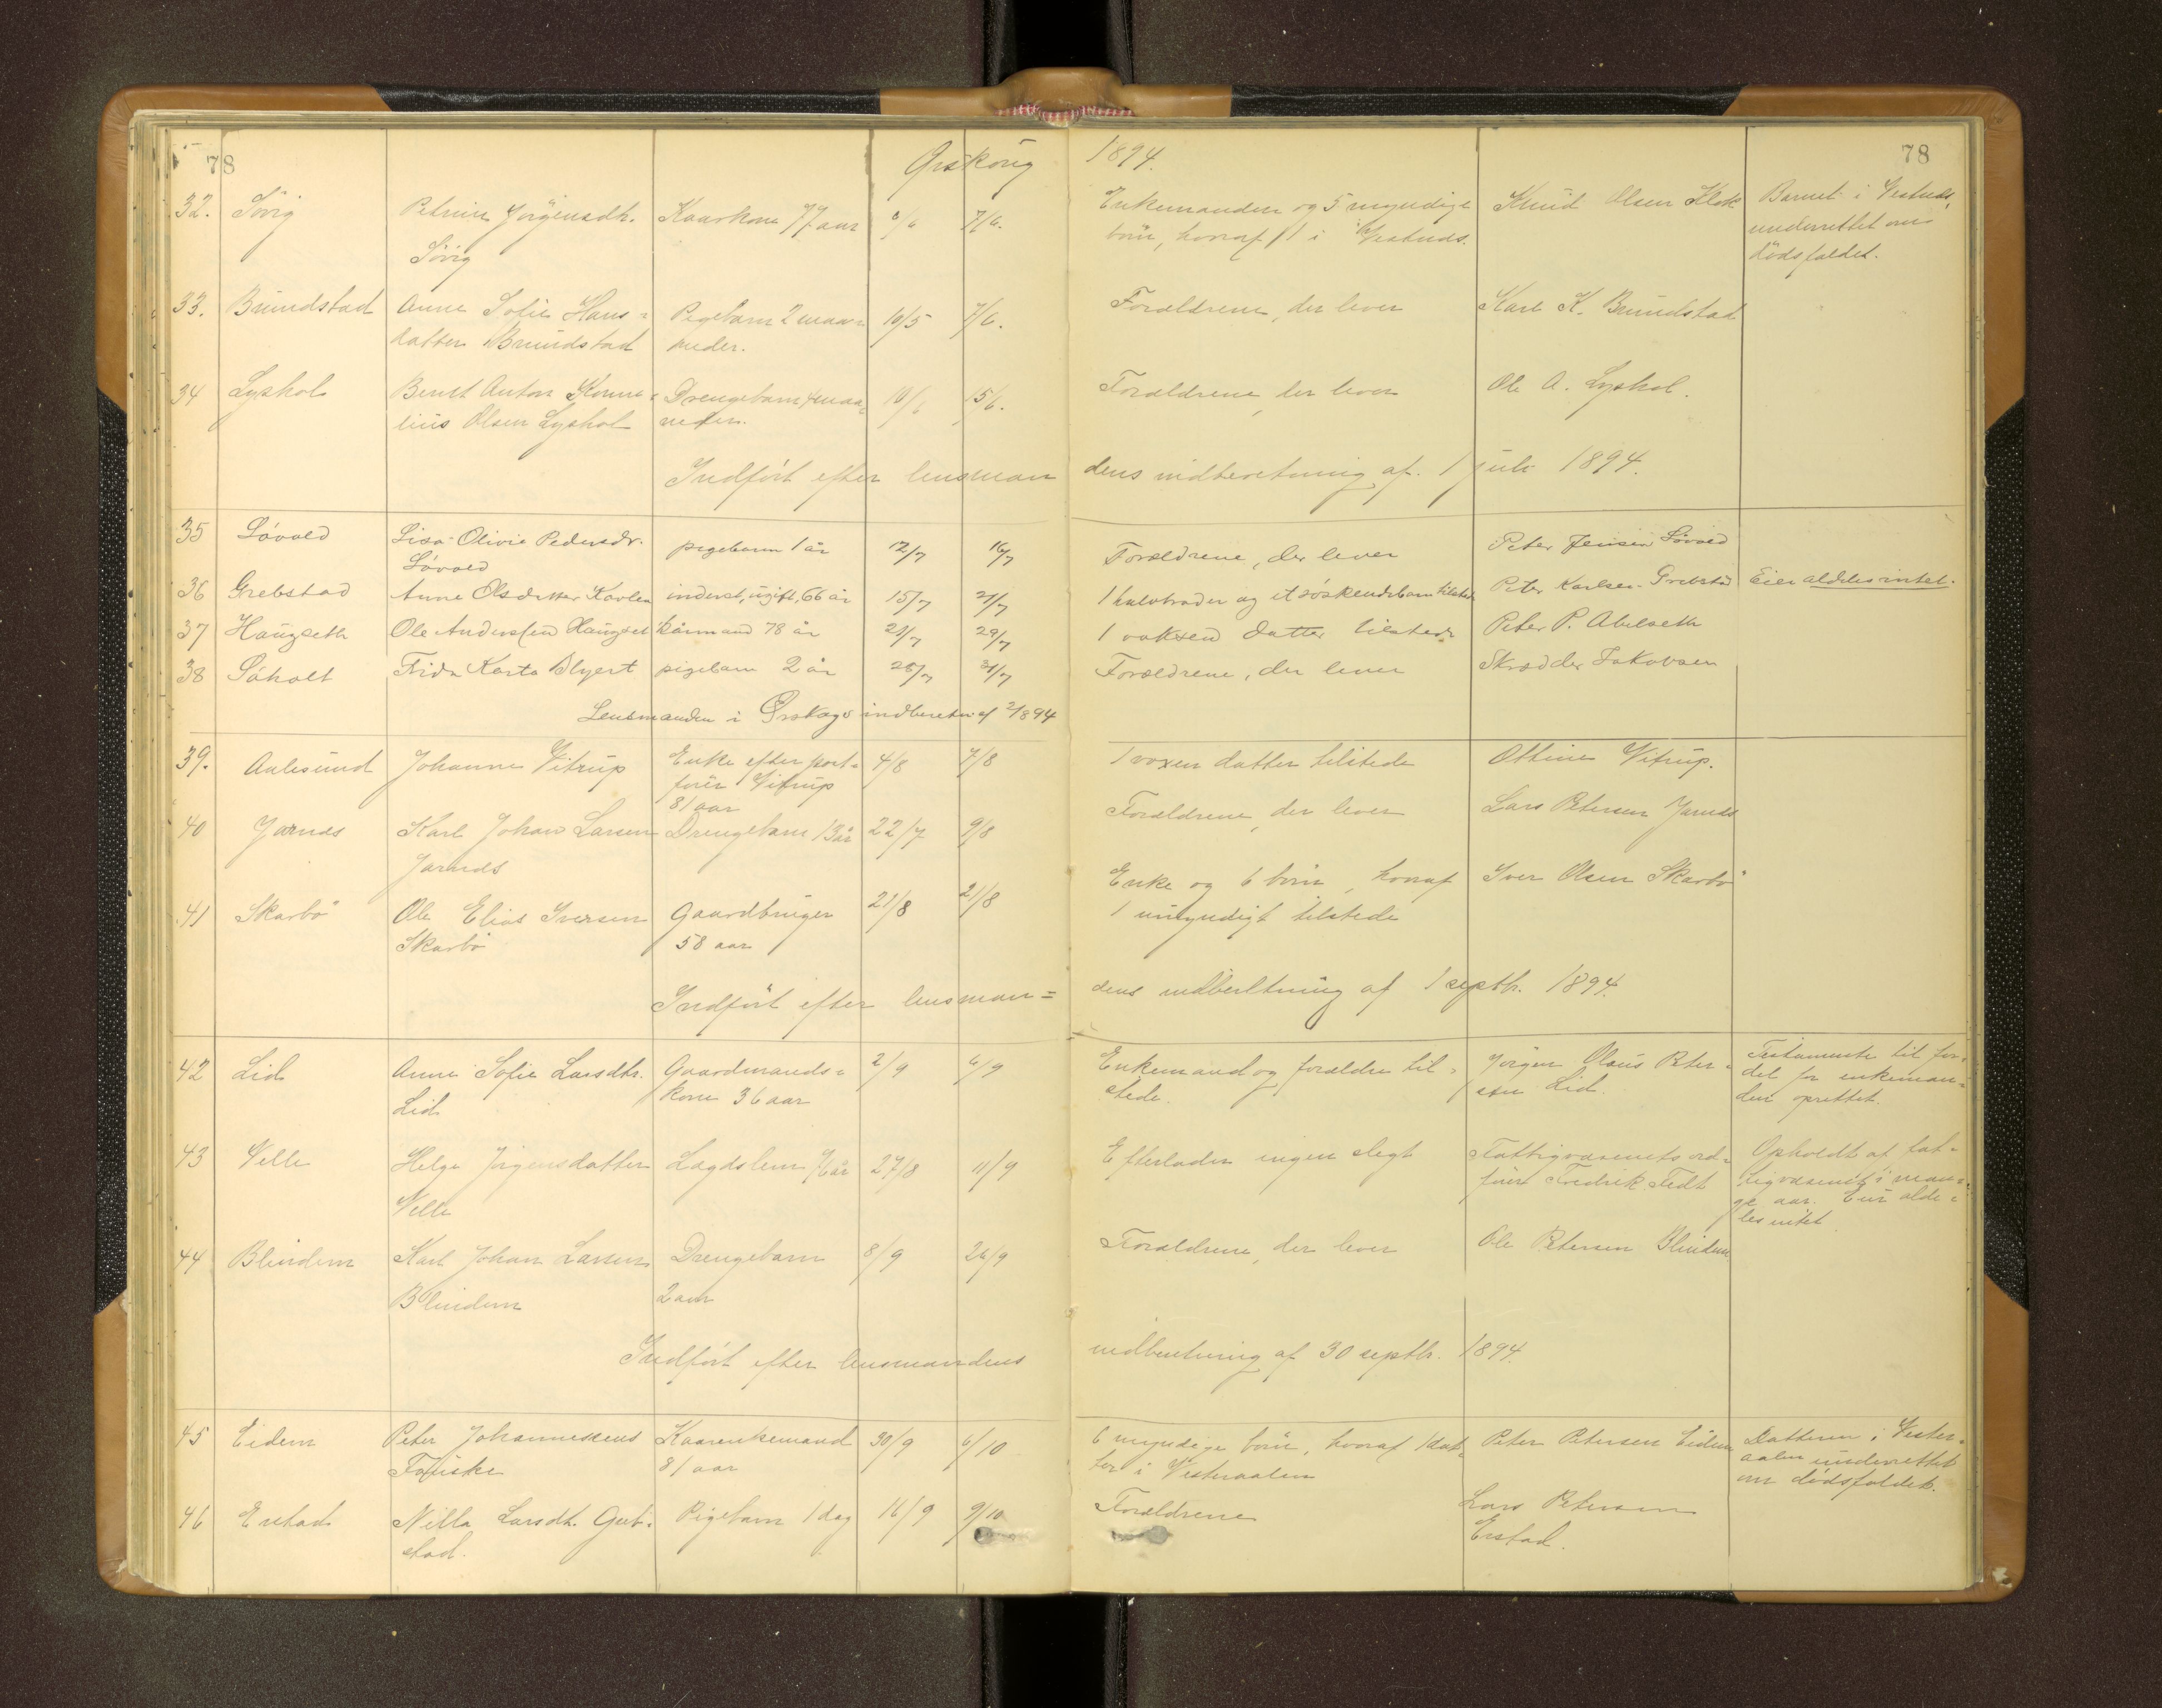 78
Ørskoug 1894.
78
32. Søvig Petrine Jørgensdtr. Kaarkone 77 aar 7/6. Enkemanden og 5 myndige Knud Olsen Barnet i Vestnæs,
Søvig børn, hvoraf 1 i Vestnæs. underrettet om
dødsfaldet.
33. Brundstad Anne Sofie Hans= Pigebarn 2 maa= 10/5 7/6. Forældrene, der lever Karl K. Brundstad
datter Brundstad neder.
34 Lyshol Bernt Anton Korne= Drengebarn maa= 10/6 15/6. Forældrene, der lever Ole A. Lyshol.
lius Olsen Lyshol neder.
Indført efter lensmandens indberetning af 1 juli 1894.
35 Løvold Lisa Olivie Pedersdr. pigebarn 1 år 12/7 16/7 Forældrene, der lever Peter Jensen Løvold
Løvold
36 Grebstad Anne Olsdatter inderst, ugift, 66 år 15/7 21/7 1 halvbroder og et søskendebarn tilstede Peter Karlsen Grebstad Eier aldeles intet.
37 Haugseth Ole Andersen Haugset kårmand 78 år 21/7 29/7 1 voksen datter tilstede Peter P. Abelseth
38 Søholt Frida Karta Blyert pigebarn 2 år 28/7 31/7 Forældrene, der lever Skrædder Jakobsen
Lensmanden i Ørskogs indberetn. af 2/8 94
39. Aalesund Johanne Vitrup Enke efter post= 4/8 7/8 1 voxen datter tilstede Ottine Vitrup.
fører Vitrup
81 aar
40 Jarnæs Karl Johan Larsen Drengebarn 13 år 22/7 9/8 Forældrene, der lever Lars Petersen Jarnæs
Jarnæs
41 Skarbø Ole Elias Iversen Gaardbruger 21/8 21/8 Enke og 6 børn, hvoraf Iver Olsen Skarbø
Skarbø 58 aar 1 umyndigt tilstede
Indført efter lensman= dens indberetning af 1 septbr. 1894.
42 Lid Anne Sofie Larsdtr. Gaardmands= 2/9 6/9 Enkemand og forældre til= Jørgen Olaus Peter= Testamente til for=
Lid kone 36 aar stede. sen Lid. del for enkeman=
den oprettet.
43 Velle Helge Jørgensdatter Lægdslem 27/8 11/9 Efterlader ingen slegt Fattigvæsenets ord= Opholdt af fat=
Velle fører Fredrik Tedt tigvæsenet i man=
ge aar. Eier alde=
les intet
44 Blindem Karl Johan Larsen Drengebarn 8/9 26/9 Forældrene, der lever Ole Petersen Blindem.
Blindem 2 aar
Indført efter lensmandens indberetning af 30 septbr. 1894.
45 Eidem Peter Johannessens Kaarenkemand 30/9 6/10 6 myndige børn, hvoraf 1 dat= Peter Petersen Eidem Datteren i Vester=
Fauske 81 aar ter i Vesteraalen aalen underrettet
om dødsfaldet.
46 Erstad Nilla Larsdt. Greb= Pigebarn 1 dag 16/9 9/10 Forældrene Lars Petersen
stad. Erstad.